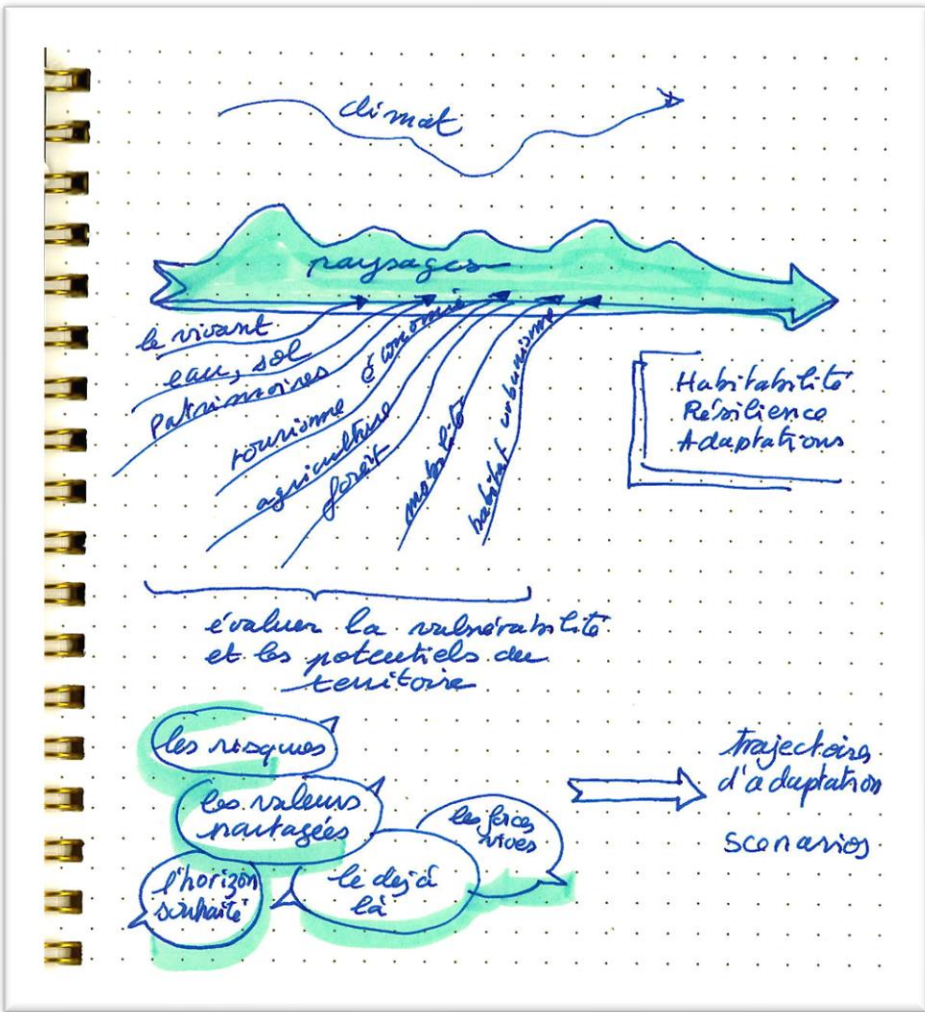 climat
paysages
le vivant
eau, sol
patrimoines
économie
tourisme
agriculture
forêt
mobilité
habitat urbanisme
Habitabilité
Résilience
Adaptations
évaluer la vulnérabilité
et les potentiels du
territoire
les risques
les valeurs
partagées
les forces
vives
l'horizon
souhaité
le dejà
là
trajectoires
d'adaptation
scenarios